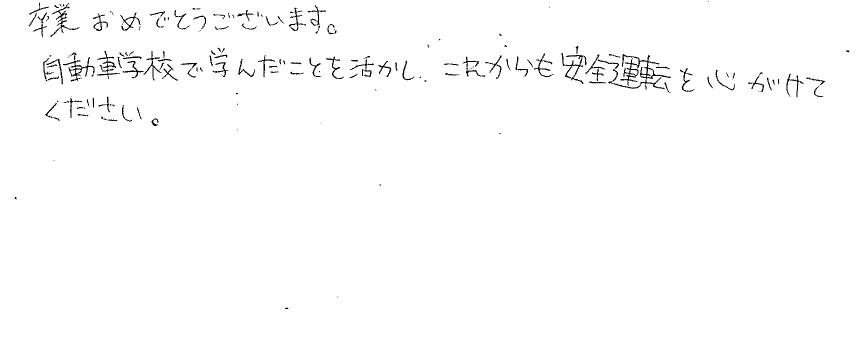 卒業おめでとうございます。
自動車学校で学んだことを活かし、これからも安全運転を心がけて
ください。